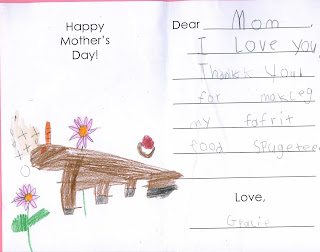 Happy
Mother's
Day!
Dear Mom,
I Love you
Thankk You!
for makeg
my fafrit
food Spugetee
Love,
Gracie